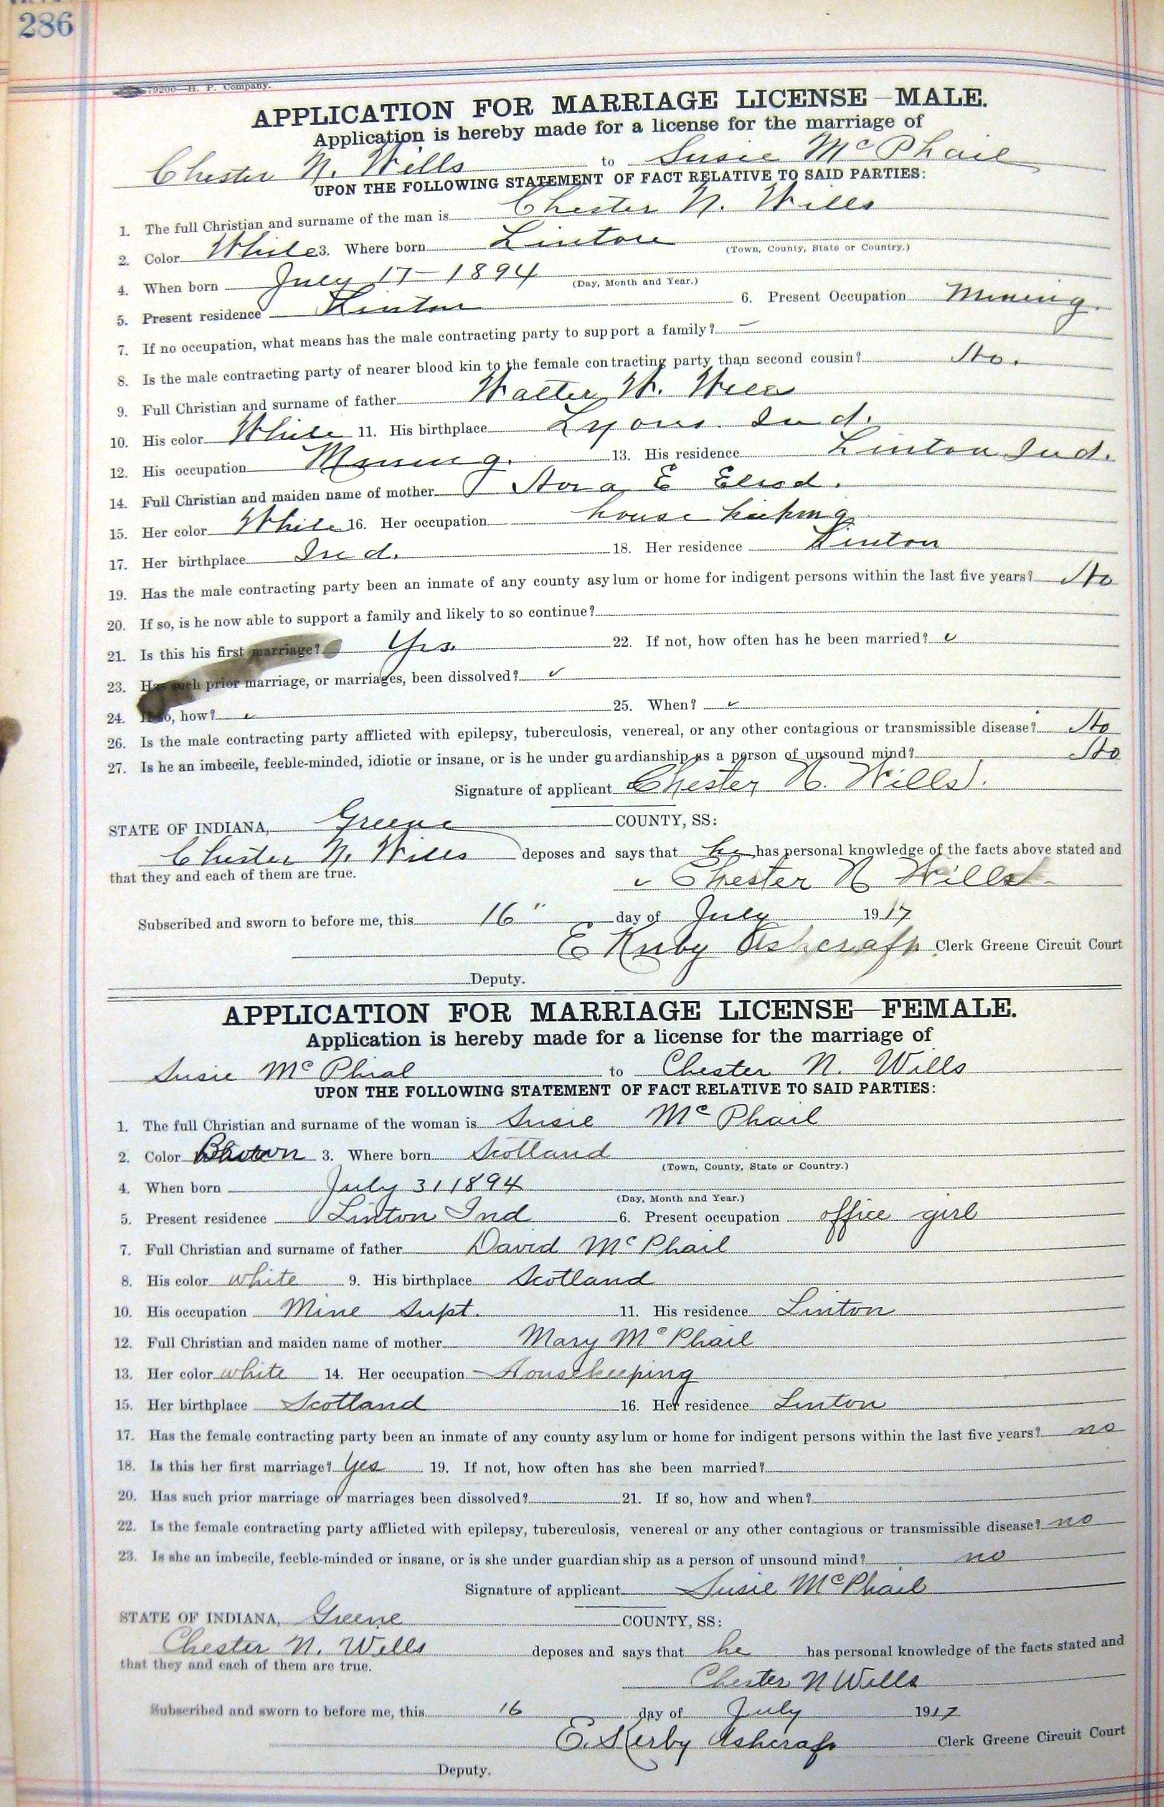 286
79200—H. P. Company.
APPLICATION FOR MARRIAGE LICENSE—MALE.
Application is hereby made for a license for the marriage of
Chester N. Wills to Susie McPhail
UPON THE FOLLOWING STATEMENT OF FACT RELATIVE TO SAID PARTIES:
1. The full Christian and surname of the man is Chester N. Wills
2. Color White 3. Where born Linton
(Town, County, State or Country.)
4. When born July 17 – 1894
(Day, Month and Year.)
5. Present residence Linton 6. Present Occupation Mining.
7. If no occupation, what means has the male contracting party to support a family? –
8. Is the male contracting party of nearer blood kin to the female contracting party than second cousin? No.
9. Full Christian and surname of father Walter W. Wills
10. His color White 11. His birthplace Lyons. Ind.
12. His occupation Mining. 13. His residence Linton Ind.
14. Full Christian and maiden name of mother Nora E Elrod.
15. Her color White 16. Her occupation house keeping
17. Her birthplace Ind. 18. Her residence Linton
19. Has the male contracting party been an inmate of any county asylum or home for indigent persons within the last five years? No
20. If so, is he now able to support a family and likely to so continue?
21. Is this his first marriage? Yes. 22. If not, how often has he been married? ✓
23. Has such prior marriage, or marriages, been dissolved? ✓
24. If so, how? ✓ 25. When? ✓
26. Is the male contracting party afflicted with epilepsy, tuberculosis, venereal, or any other contagious or transmissible disease? No
27. Is he an imbecile, feeble-minded, idiotic or insane, or is he under guardianship as a person of unsound mind? No
Signature of applicant Chester N. Wills.
STATE OF INDIANA, Greene COUNTY, SS:
Chester N. Wills deposes and says that he has personal knowledge of the facts above stated and
that they and each of them are true.
✓ Chester N Wills
Subscribed and sworn to before me, this 16" day of July 1917
E Kirby Ashcraft Clerk Greene Circuit Court
Deputy.
APPLICATION FOR MARRIAGE LICENSE—FEMALE.
Application is hereby made for a license for the marriage of
Susie McPhial to Chester N. Wills
UPON THE FOLLOWING STATEMENT OF FACT RELATIVE TO SAID PARTIES:
1. The full Christian and surname of the woman is Susie McPhail
2. Color 3. Where born Scotland
(Town, County, State or Country.)
4. When born July 31 1894
(Day, Month and Year.)
5. Present residence Linton Ind 6. Present occupation office girl
7. Full Christian and surname of father David McPhail
8. His color white 9. His birthplace Scotland
10. His occupation Mine Supt. 11. His residence Linton
12. Full Christian and maiden name of mother Mary McPhail
13. Her color white 14. Her occupation Housekeeping
15. Her birthplace Scotland 16. Her residence Linton
17. Has the female contracting party been an inmate of any county asylum or home for indigent persons within the last five years? no
18. Is this her first marriage? Yes 19. If not, how often has she been married?
20. Has such prior marriage or marriages been dissolved? 21. If so, how and when?
22. Is the female contracting party afflicted with epilepsy, tuberculosis, venereal or any other contagious or transmissible disease? no
23. Is she an imbecile, feeble-minded or insane, or is she under guardianship as a person of unsound mind? no
Signature of applicant Susie McPhail
STATE OF INDIANA, Greene COUNTY, SS:
Chester N. Wills deposes and says that he has personal knowledge of the facts stated and
that they and each of them are true.
Chester N Wills
Subscribed and sworn to before me, this 16 day of July 1917
E. Kerby Ashcraft Clerk Greene Circuit Court
Deputy.